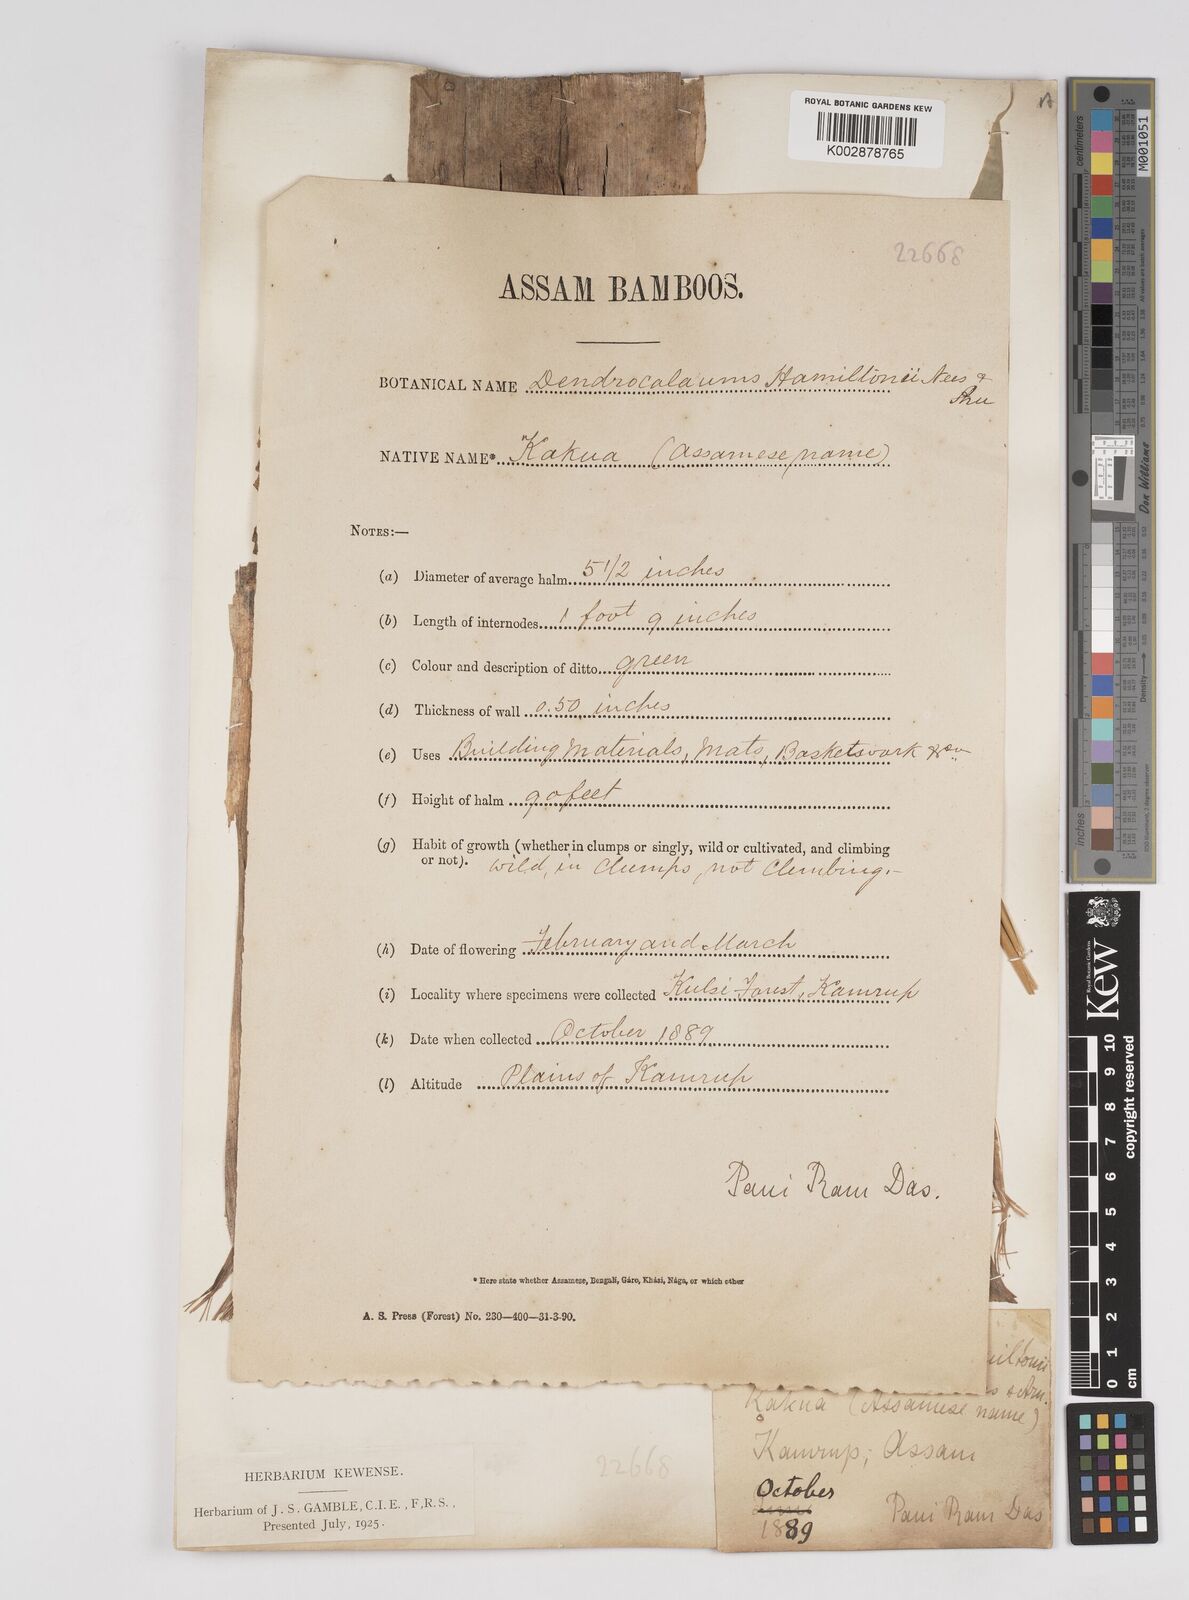 ROYAL BOTANIC GARDENS KEW
K002878765
22668
ASSAM BAMBOOS.
BOTANICAL NAME Dendrocalaums Hamiltonii Nees &
NATIVE NAME* Kakua (Assamese name)
NOTES:—
(a) Diameter of average halm 5 1/2 inches
(b) Length of internodes 1 foot 9 inches
(c) Colour and description of ditto green
(d) Thickness of wall 0.50 inches
(e) Uses Building Materials, Mats, Basketswork
(f) Height of halm 90 feet
(g) Habit of growth (whether in clumps or singly, wild or cultivated, and climbing
or not). wild, in clumps, not climbing.—
(h) Date of flowering February and March
(i) Locality where specimens were collected Kulsi Forest, Kamrup
(k) Date when collected October 1889
(l) Altitude Plains of Kamrup
Pani Ram Das.
* Here state whether Assamese, Bengali, Gáro, Khási, Nága, or which other
A. S. Press (Forest) No. 230—400—31-3-90.
miltonii
s & Arn.
Kakua (Assamese name)
Kamrup; Assam
October
1889
Pani Ram Das
22668
HERBARIUM KEWENSE.
Herbarium of J. S. GAMBLE, C.I.E., F.R.S.,
Presented July, 1925.
centimeters
M001051
Don Williams
inches
Density
Royal Botanic Gardens
Kew
copyright reserved
0 1 2 3 4 5 6 7 8 9 10
cm